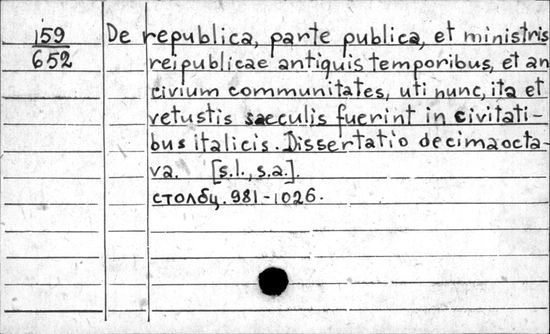 159 De republica, parte publica, et ministris
652 reipublicae antiquis temporibus, et an
civium communitates, uti nunc, ita et
vetustis saeculis fuerint in civitati-
bus italicis. Dissertatio decimaocta-
va. [s.l., s.a.].
столбц. 981-1026.